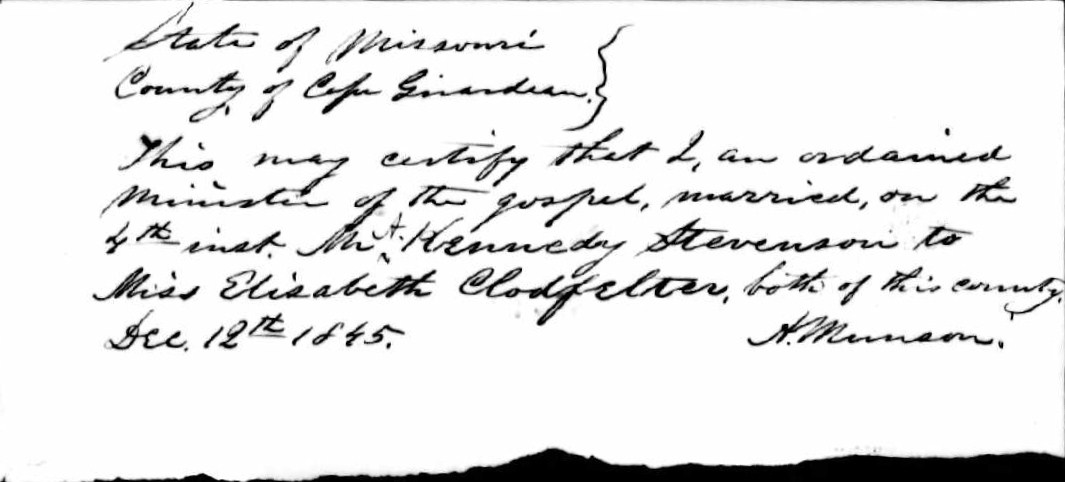 State of Missouri
County of Cape Girardeau.
This may certify that I, an ordained
minister of the gospel, married, on the
4th inst. Mr. A. Kennedy Stevenson to
Miss Elisabeth Clodfelter, both of this county.
Dec. 12th 1845. A. Munson.